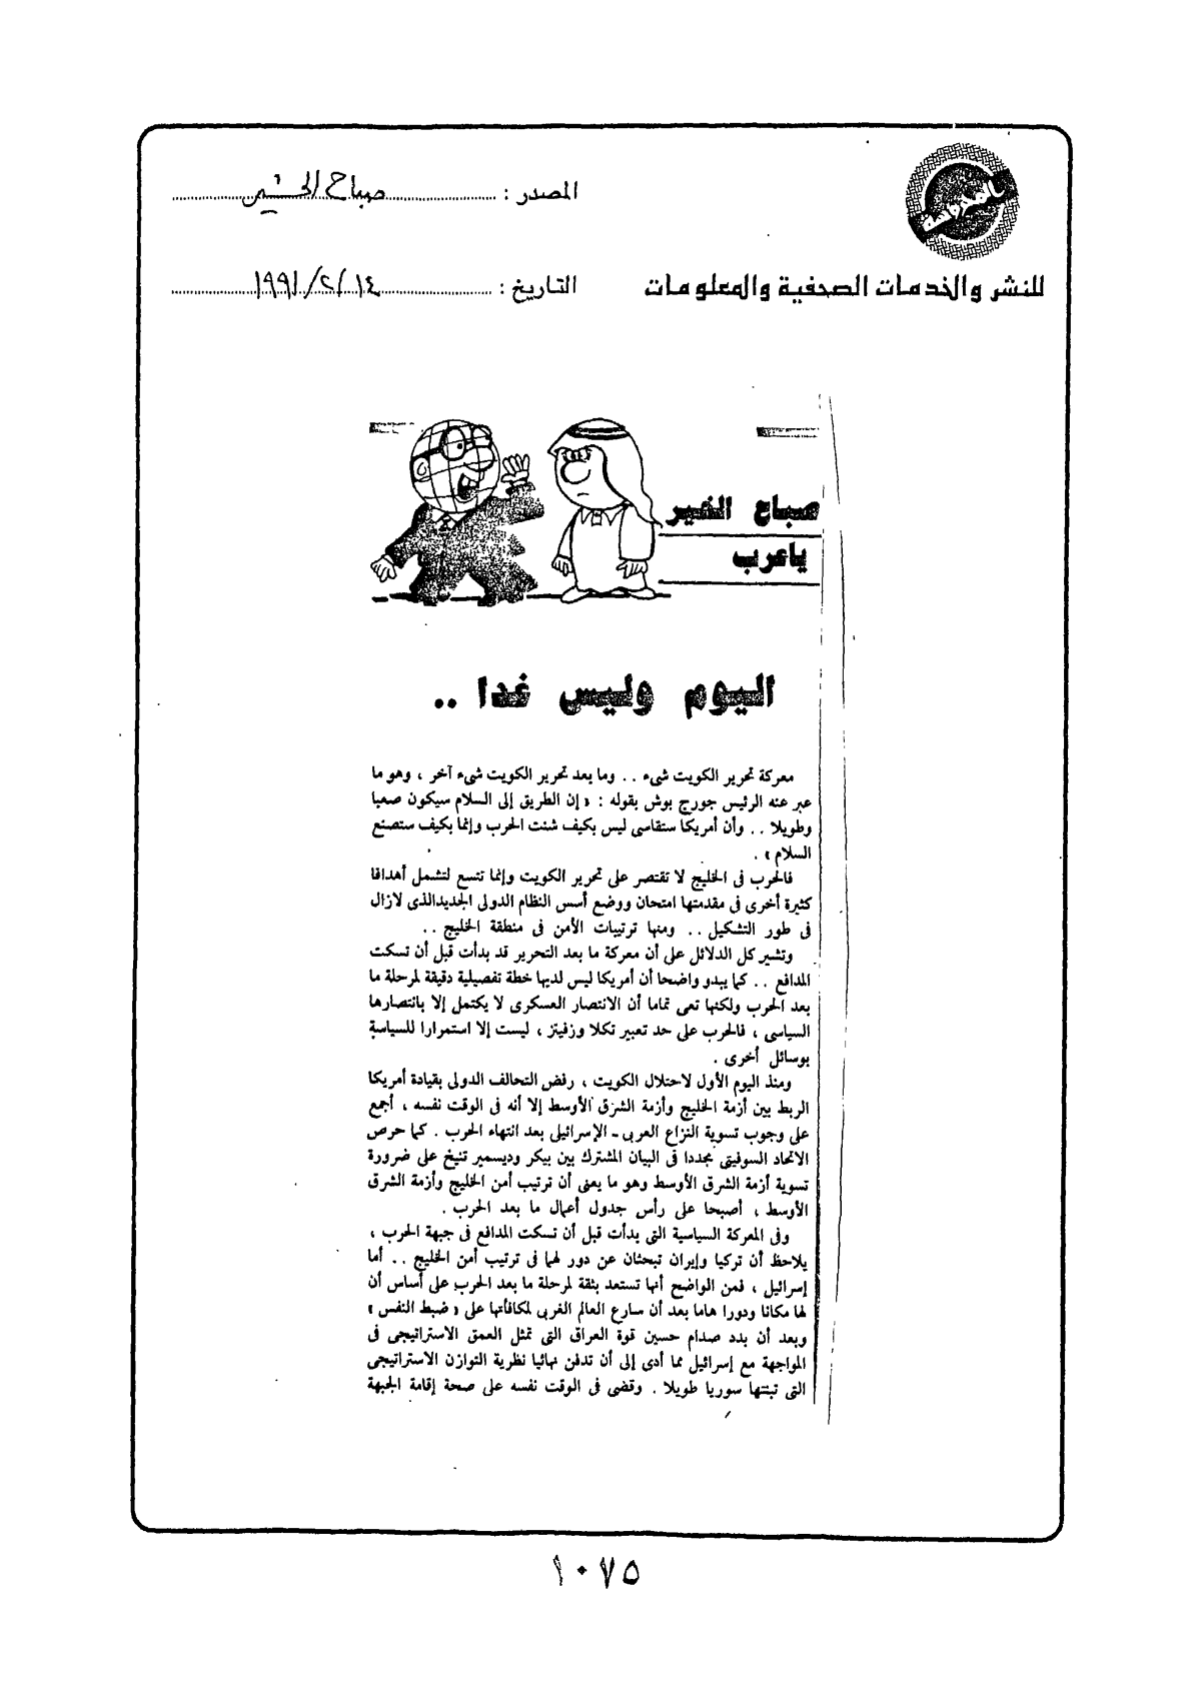 المصدر : صباح الخير
للنشر والخدمات الصحفية والمعلومات
التاريخ : ١٤/٢/١٩٩١
صباح الخير
ياعرب
اليوم وليس غدا ..
معركة تحرير الكويت شىء .. وما بعد تحرير الكويت شىء آخر ، وهو ما
عبر عنه الرئيس جورج بوش بقوله : « إن الطريق إلى السلام سيكون صعبا
وطويلا .. وأن أمريكا ستقاسى ليس بكيف شنت الحرب وإنما بكيف ستصنع
السلام » .
فالحرب فى الخليج لا تقتصر على تحرير الكويت وإنما تتسع لتشمل أهدافا
كثيرة أخرى فى مقدمتها امتحان ووضع أسس النظام الدولى الجديدالذى لازال
فى طور التشكيل .. ومنها ترتيبات الأمن فى منطقة الخليج ..
وتشير كل الدلائل على أن معركة ما بعد التحرير قد بدأت قبل أن تسكت
المدافع .. كما يبدو واضحا أن أمريكا ليس لديها خطة تفصيلية دقيقة لمرحلة ما
بعد الحرب ولكنها تعى تماما أن الانتصار العسكرى لا يكتمل إلا بانتصارها
السياسى ، فالحرب على حد تعبير تكلا وزفيتز ، ليست إلا استمرارا للسياسة
بوسائل أخرى .
ومنذ اليوم الأول لاحتلال الكويت ، رفض التحالف الدولى بقيادة أمريكا
الربط بين أزمة الخليج وأزمة الشرق الأوسط إلا أنه فى الوقت نفسه ، أجمع
على وجوب تسوية النزاع العربى - الإسرائيلى بعد انتهاء الحرب . كما حرص
الاتحاد السوفيتى مجددا فى البيان المشترك بين بيكر وديسمير تنيخ على ضرورة
تسوية أزمة الشرق الأوسط وهو ما يعنى أن ترتيب أمن الخليج وأزمة الشرق
الأوسط ، أصبحا على رأس جدول أعمال ما بعد الحرب .
وفى المعركة السياسية التى بدأت قبل أن تسكت المدافع فى جبهة الحرب ،
يلاحظ أن تركيا وإيران تبحثان عن دور لهما فى ترتيب أمن الخليج .. أما
إسرائيل ، فمن الواضح أنها تستعد بثقة لمرحلة ما بعد الحرب على أساس أن
لها مكانا ودورا هاما بعد أن سارع العالم الغربى لمكافأتها على « ضبط النفس »
وبعد أن بدد صدام حسين قوة العراق التى تمثل العمق الاستراتيجى فى
المواجهة مع إسرائيل مما أدى إلى أن تدفن نهائيا نظرية التوازن الاستراتيجى
التى تبنتها سوريا طويلا . وقضى فى الوقت نفسه على صحة إقامة الجبهة
١٠٧٥